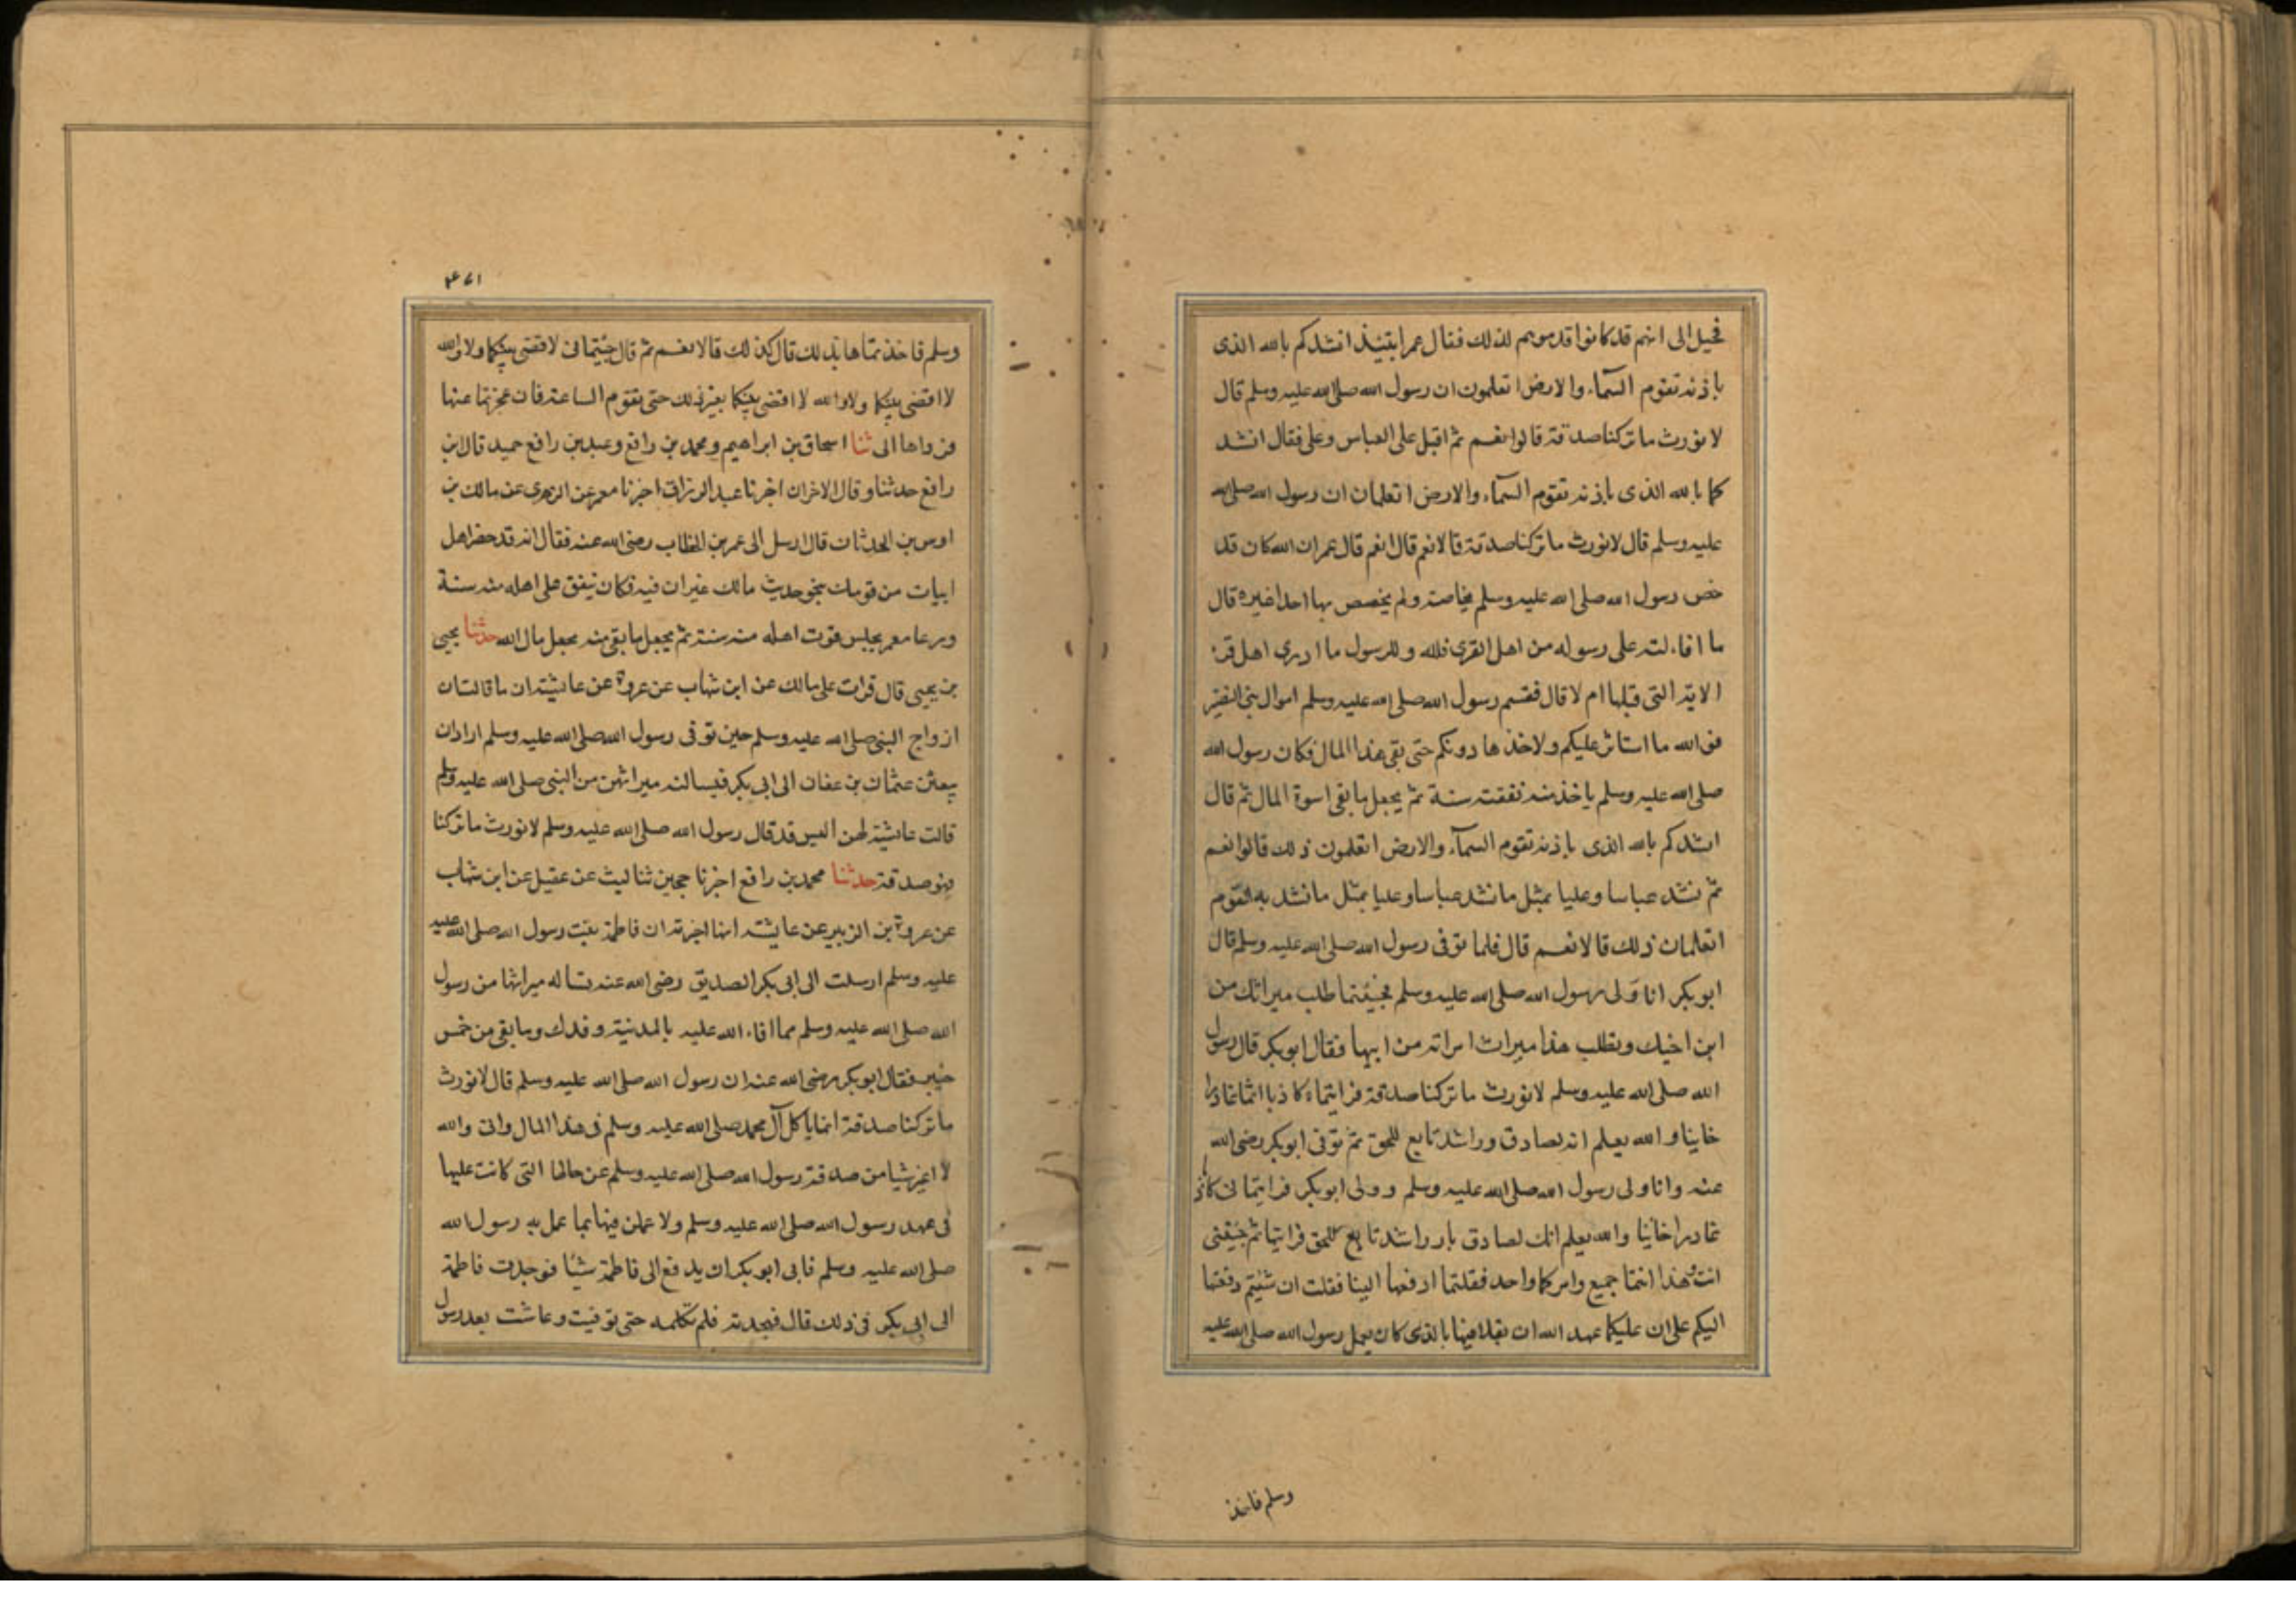 فخيل الى انهم قد كانوا قدموهم لذلك فقال عمر ايتئذ انشدكم بالله الذى
باذنه تقوم السمآء والارض اتعلمون ان رسول الله صلى الله عليه وسلم قال
لا نورث ما تركنا صدقة قالوا نعم ثم اقبل على العباس وعلى فقال انشد
كما بالله الذى باذنه تقوم السمآء والارض اتعلمان ان رسول الله صلى الله
عليه وسلم قال لا نورث ما تركنا صدقة قالا نعم قال نعم قال عمر ان الله كان قد
خص رسول الله صلى الله عليه وسلم بخاصة ولم يخصص بها احدا غيره قال
ما افاء الله على رسوله من اهل القرى فلله وللرسول ما ادرى اهل قرء
الاية التى قبلها ام لا قال فقسم رسول الله صلى الله عليه وسلم اموال بنى النضير
فوالله ما استاثر عليكم ولا اخذها دونكم حتى بقى هذا المال فكان رسول الله
صلى الله عليه وسلم ياخذ منه نفقة سنة ثم يجعل ما بقى اسوة المال ثم قال
انشدكم بالله الذى باذنه تقوم السمآء والارض اتعلمون ذلك قالوا نعم
ثم نشد عباسا وعليا بمثل ما نشد عباسا وعليا بمثل ما نشد به القوم
اتعلمان ذلك قالا نعم قال فلما توفى رسول الله صلى الله عليه وسلم قال
ابو بكر انا ولى رسول الله صلى الله عليه وسلم فجئتما طلب ميراثك من
ابن اخيك ويطلب هذا ميراث امراته من ابيها فقال ابو بكر قال رسول
الله صلى الله عليه وسلم لا نورث ما تركنا صدقة فرايتماه كاذبا اثما غادرا
خاينا والله يعلم انه لصادق وراشد تابع للحق ثم توفى ابو بكر رضى الله
عنه وانا ولى رسول الله صلى الله عليه وسلم وولى ابو بكر فرايتمانى كاذبا
غادرا خائنا والله يعلم انك لصادق بار راشد تابع للحق فرايتها ثم جئتنى
انت وهذا انتما جميع وامركما واحد فقلتما ادفعها الينا فقلت ان شئتم دفعتها
اليكم على ان عليكما عهد الله ان تعملا فيها بالذى كان يعمل رسول الله صلى الله عليه
وسلم فاخذ
٤٧١
وسلم فاخذتماها بذلك قال كذلك قالا نعم ثم قال جئتمانى لاقضى بينكما ولا والله
لا اقضى بينكما ولا والله لا اقضى بينكما بغير ذلك حتى تقوم الساعة فان عجزتما عنها
فرداها الى ثنا اسحاق بن ابراهيم ومحمد بن رافع وعبد بن رافع حميد قال ابن
رافع حدثنا وقال الاخران اخبرنا عبد الرزاق اخبرنا معمر عن الزهرى عن مالك بن
اوس بن الحدثان قال ارسل الى عمر بن الخطاب رضى الله عنه فقال انه قد حضر اهل
ابيات من قومك بنحو حديث مالك غير ان فيه فكان ينفق على اهله منه سنة
وربما معمر يحبس قوت اهله منه سنة ثم يجعل ما بقى منه مجعل مال الله حدثنا يحيى
بن يحيى قال قرات على مالك عن ابن شهاب عن عروة عن عايشة ان ما قالت ان
ازواج النبى صلى الله عليه وسلم حين توفى رسول الله صلى الله عليه وسلم ارادان
يبعثن عثمان بن عفان الى ابى بكر فيسالنه ميراثهن من النبى صلى الله عليه وسلم
قالت عايشة لهن اليس قد قال رسول الله صلى الله عليه وسلم لا نورث ما تركنا
فهو صدقة حدثنا محمد بن رافع اخبرنا حجين ثنا ليث عن عقيل عن ابن شهاب
عن عروة بن الزبير عن عايشة انها اخبرته ان فاطمة بنت رسول الله صلى الله عليه
عليه وسلم ارسلت الى ابى بكر الصديق رضى الله عنه تساله ميراثها من رسول
الله صلى الله عليه وسلم مما افاء الله عليه بالمدينة وفدك وما بقى من خمس
خيبر فقال ابو بكر رضى الله عنه ان رسول الله صلى الله عليه وسلم قال لا نورث
ما تركنا صدقة انما ياكل آل محمد صلى الله عليه وسلم فى هذا المال وانى والله
لا اغير شيا من صدقة رسول الله صلى الله عليه وسلم عن حالها التى كانت عليها
فى عهد رسول الله صلى الله عليه وسلم ولا عملن فيها بما عمل به رسول الله
صلى الله عليه وسلم فابى ابو بكر ان يدفع الى فاطمة شيئا فوجدت فاطمة
الى ابى بكر فى ذلك قال فهجدته فلم تكلمه حتى توفيت وعاشت بعد رسول